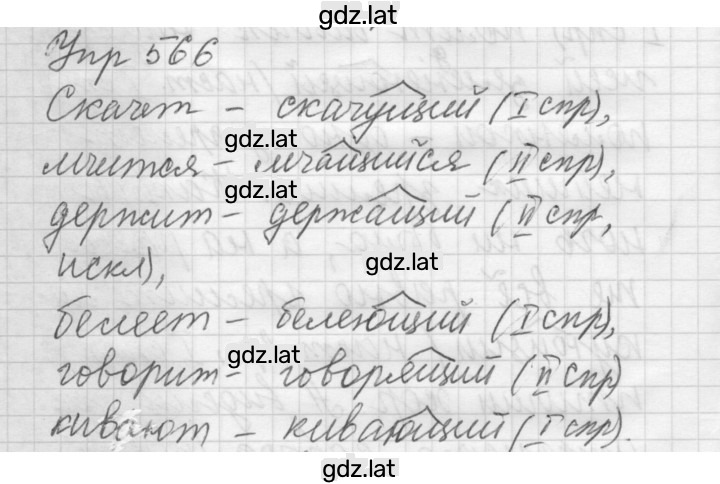 gdz.lat
Упр 566
Скачет – скачущий (I спр),
gdz.lat
мчится – мчащийся (II спр),
gdz.lat
держит – держащий (II спр,
искл),
gdz.lat
белеет – белеющий (I спр),
gdz.lat
говорит – говорящий (II спр)
кивают – кивающий (I спр).
gdz.lat